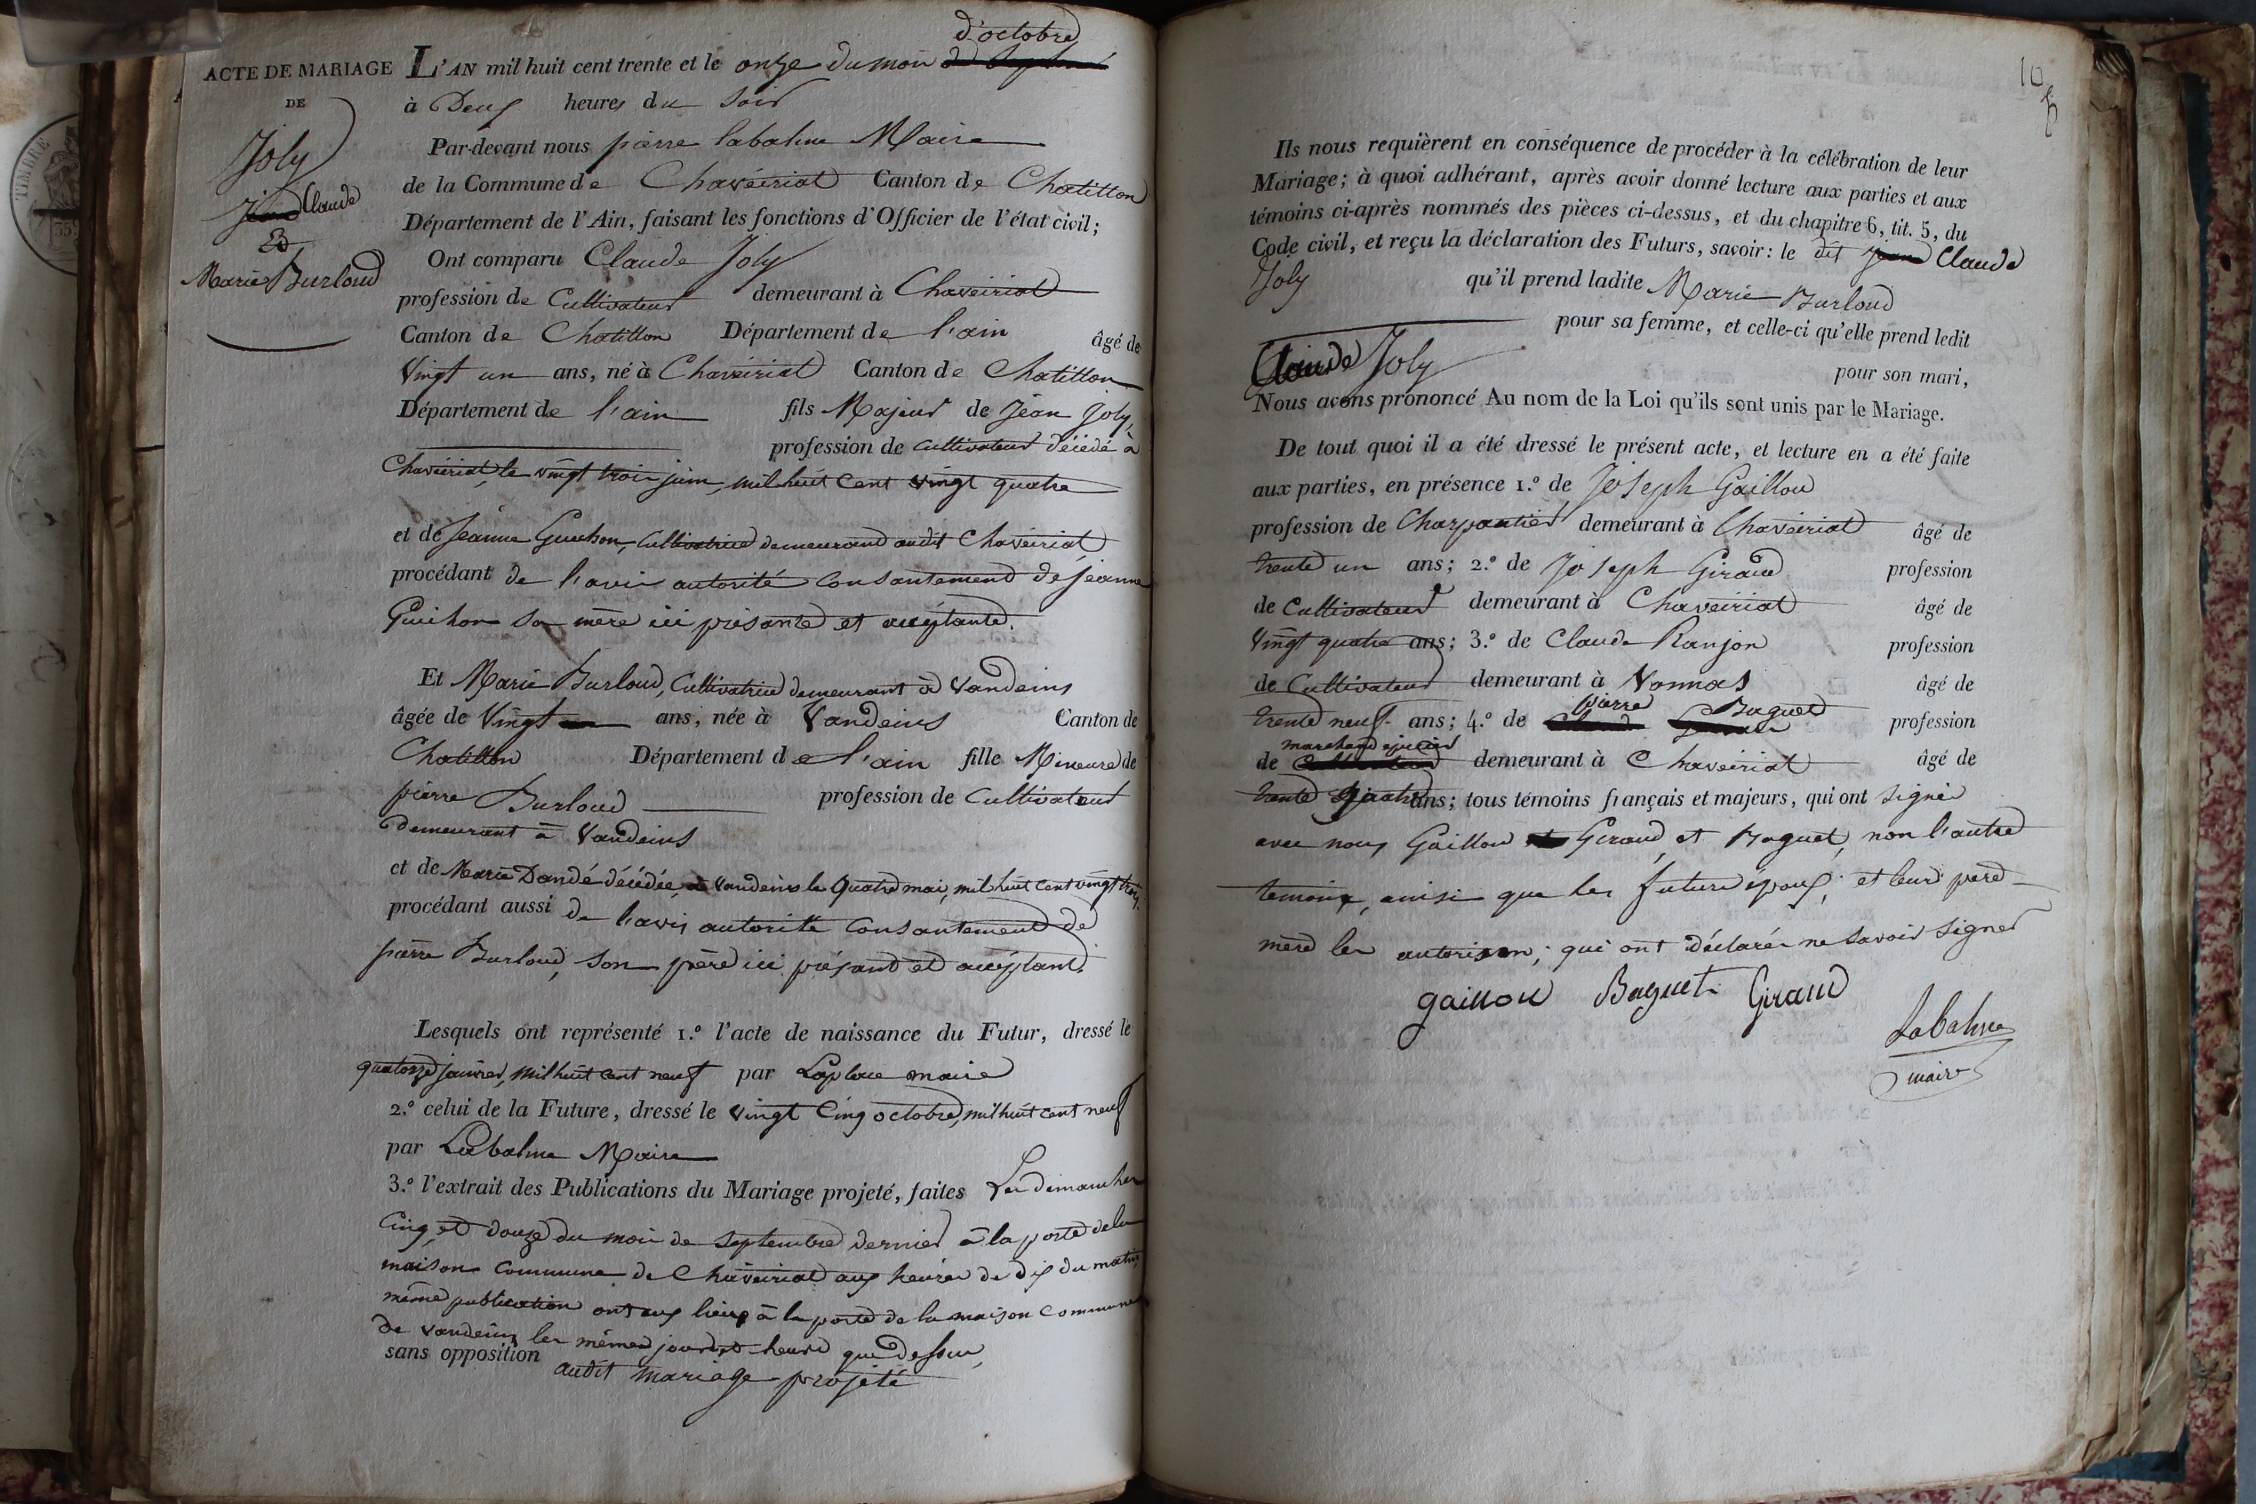 ACTE DE MARIAGE
DE
Joly
Claude
Et
Marie Burloud
d'octobre
L'AN mil huit cent trente et le onze du mois
à Deux heures du soir
Par-devant nous pierre labalme Maire
de la Commune de Chaveiriat Canton de Chatillon
Département de l'Ain, faisant les fonctions d'Officier de l'état civil;
Ont comparu Claude Joly
profession de Cultivateur demeurant à Chaveiriat
Canton de Chatillon Département de l'ain âgé de
Vingt un ans, né à Chaveiriat Canton de Chatillon
Département de l'ain fils Majeur de Jean Joly,
profession de Cultivateur décédé à
Chaveiriat, le vingt trois juin, mil huit Cent vingt quatre
et de Jeanne Guichon, Cultivatrice demeurant audit Chaveiriat
procédant de l'avis autorité Consantement de Jeanne
Guichon sa mère ici présante et acceptante.
Et Marie Burloud, Cultivatrice demeurant à Vandeins
âgée de Vingt ans, née à Vandeins Canton de
Chatillon Département de l'ain fille Mineure de
pierre Burloud profession de Cultivateur
demeurant à Vandeins
et de Marie Dandé décédée, à Vandeins le Quatre mai, mil huit cent vingt trois.
procédant aussi de l'avis autorité Consantement de
pierre Burloud, son père ici présant et acceptant.
Lesquels ont représenté 1.° l'acte de naissance du Futur, dressé le
quatorze janvier, mil huit cent neuf par Laplace maire
2.° celui de la Future, dressé le vingt Cinq octobre, mil huit cent neuf
par Labalme Maire
3.° l'extrait des Publications du Mariage projeté, faites Les dimanches
Cinq, et douze du mois de septembre dernier à la porte de la
maison Commune de Chaveiriat aux heures de dix du matin,
même publication ont eux lieux à la porte de la maison Commune
de Vandeins les mêmes jour et heure que dessus,
sans opposition audit mariage projeté
10
Ils nous requièrent en conséquence de procéder à la célébration de leur
Mariage; à quoi adhérant, après avoir donné lecture aux parties et aux
témoins ci-après nommés des pièces ci-dessus, et du chapitre 6, tit. 5, du
Code civil, et reçu la déclaration des Futurs, savoir: le dit Claude
Joly qu'il prend ladite Marie Burloud
pour sa femme, et celle-ci qu'elle prend ledit
Claude Joly pour son mari,
Nous avons prononcé Au nom de la Loi qu'ils sont unis par le Mariage.
De tout quoi il a été dressé le présent acte, et lecture en a été faite
aux parties, en présence 1.° de Joseph Gaillou
profession de Charpantier demeurant à Chaveiriat âgé de
trente un ans; 2.° de Joseph Giraud profession
de Cultivateur demeurant à Chaveiriat âgé de
Vingt quatre ans; 3.° de Claude Ranjon profession
de Cultivateur demeurant à Vonnas âgé de
trente neuf ans; 4.° de pierre Baguet profession
de marchand epicier demeurant à Chaveiriat âgé de
trente Quatre ans; tous témoins français et majeurs, qui ont signés
avec nous Gaillou Giraud, et Baguet, non l'autre
temoin, ainsi que les future époux, et leur père
mère les autorisan, qui ont déclarés ne savoir signer
gaillou Baguet Giraud
Labalme
maire